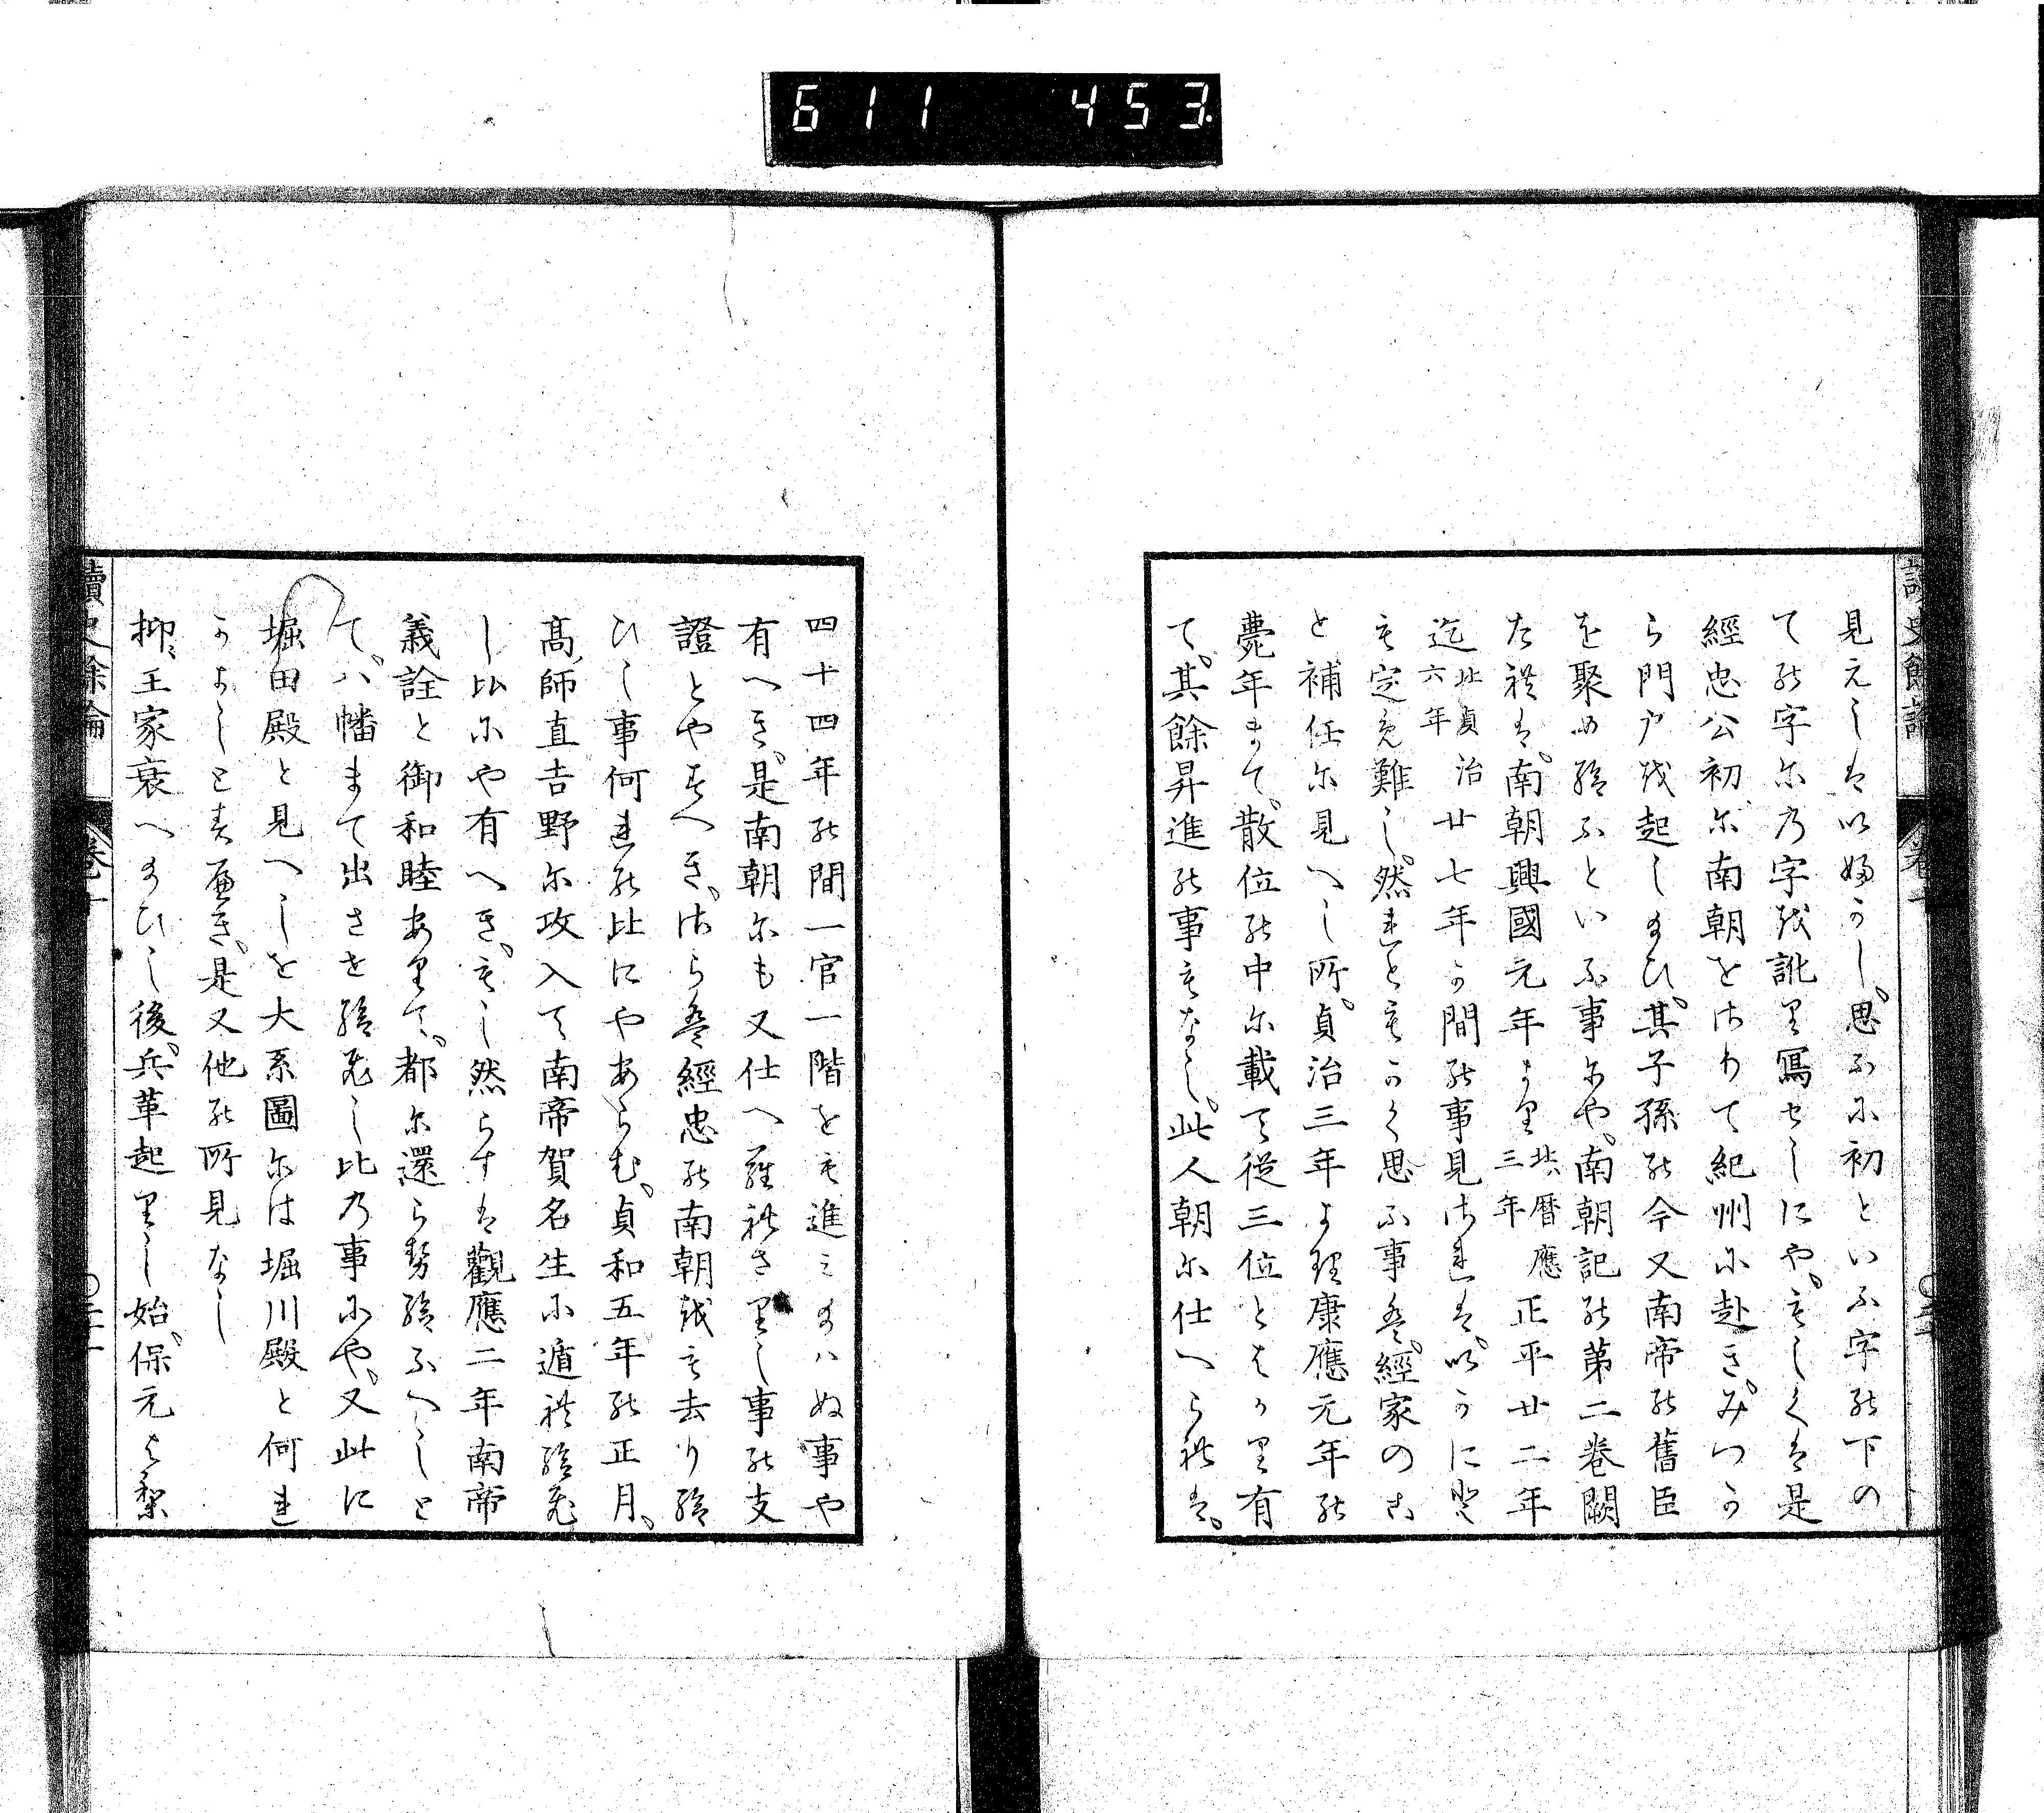 611 453
讀史餘論
卷十
見えしはいぶかし思ふに初といふ字の下の
ての字に乃字を訛り寫せしにやもしくは是
經忠公初に南朝をさりて紀州に赴きみつか
ら門戸を起し給ひ其子孫の今又南帝の舊臣
を聚め給ふといふ事にや南朝記の第二卷闕
たれは南朝興國元年より北暦應三年正平廿二年
迄北貞治六年廿七年の間の事見されはいかに共
も定め難し然れともかく思ふ事は經家のこ
と補任に見へし所貞治三年より康應元年の
薨年まて散位の中に載て從三位とはかり有
て其餘昇進の事もなし此人朝に仕へられは
四十四年の間一官一階をも進み給はぬ事や
有へき是南朝にも又仕へ羅れさりし事の支
證とやすへきさらは經忠の南朝を去り給
ひし事何れの比にやあらむ貞和五年の正月
高師直吉野に攻入て南帝賀名生に遁れ給ひ
し比にや有へきもし然らすは觀應二年南帝
義詮と御和睦ありて都に還らせ給ふへしと
て八幡まて出させ給ひし比の事にや又此に
堀田殿と見へしを大系圖には堀川殿と何れ
かよしとすへき是又他の所見なし
抑王家衰へ給ひし後兵革起りし始保元より
讀史餘論
卷十